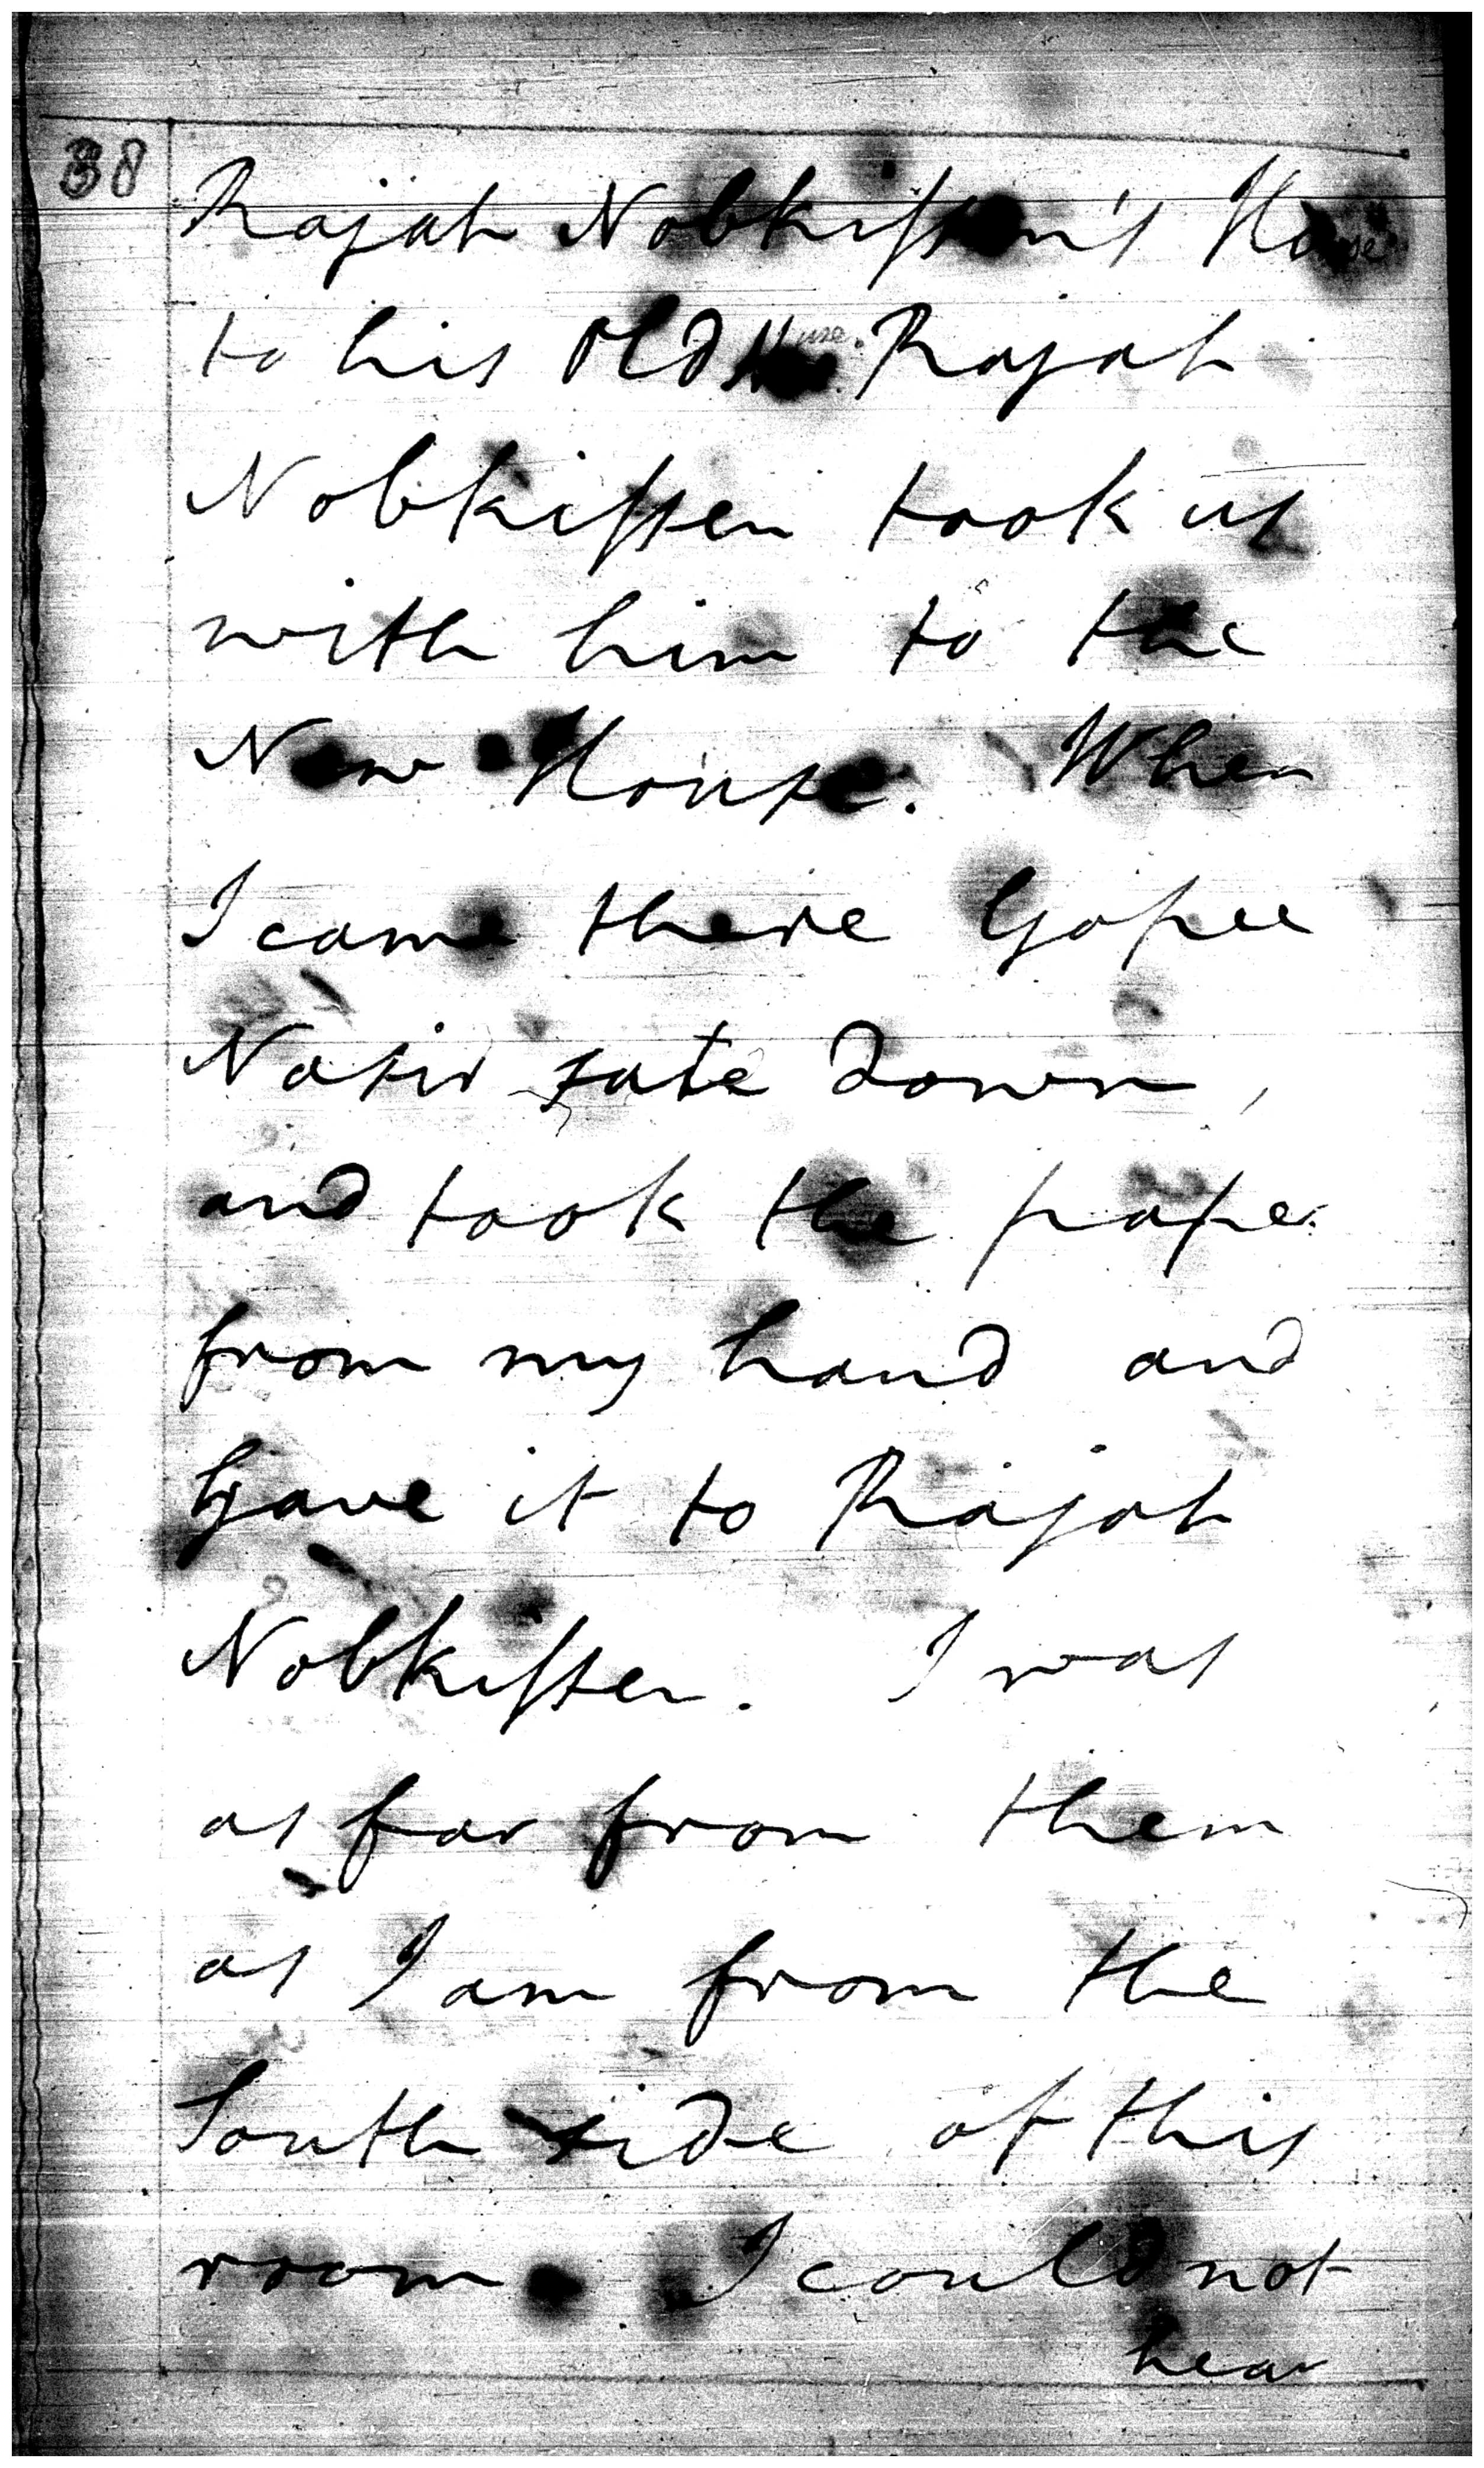 38
Rajah Nobkissen's House
to his Old House. Rajah
Nobkissen took us
with him to the
New House. When
I came there Gopee
Nasir sate down,
and took the paper
from my hand and
Gave it to Rajah
Nobkissen. I was
as far from them
as I am from the
South side of this
room I could not
hear